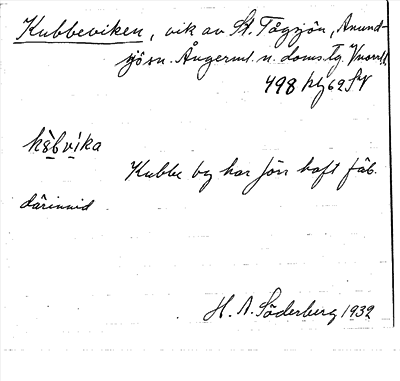 Kubbeviken, vik av St. Tågsjön, Anund-
sjö sn. Ångerml. n. doms. tg. Vnorrl.
498 kbj 62 SV
Kubbe by har förr haft fäb.
därinvid
H. A. Söderberg 1932